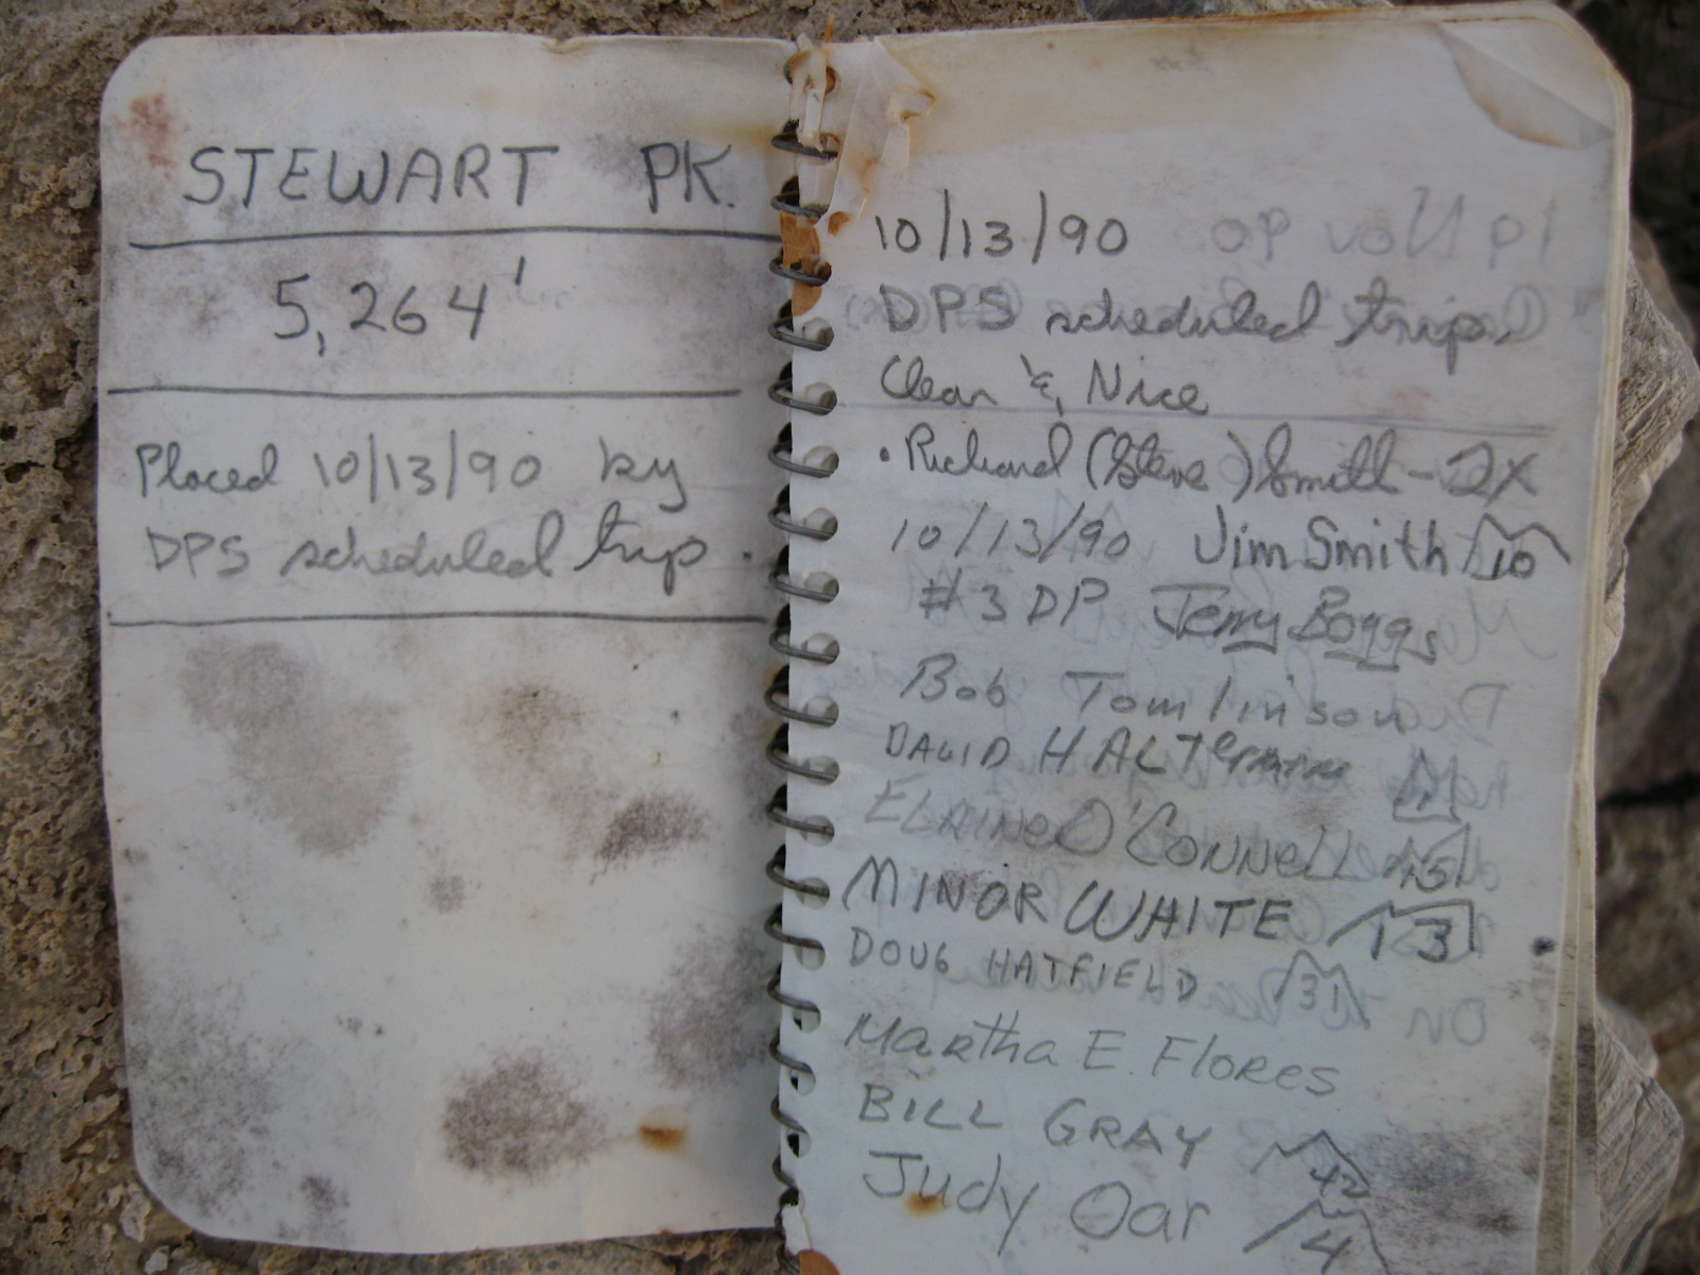 STEWART PK.
5,264'
Placed 10/13/90 by
DPS scheduled trip.
10/13/90
DPS scheduled trip.
Clear & Nice
• Richard (Steve) Smith - 2X
10/13/90 Jim Smith 10
#3 DP Jerry Boggs
Bob Tomlinson
DAVID HALTERMAN
ELAINE O'CONNELL 15
MINOR WHITE 13
DOUG HATFIELD 31
Martha E. Flores
BILL GRAY 42
Judy Oar 4